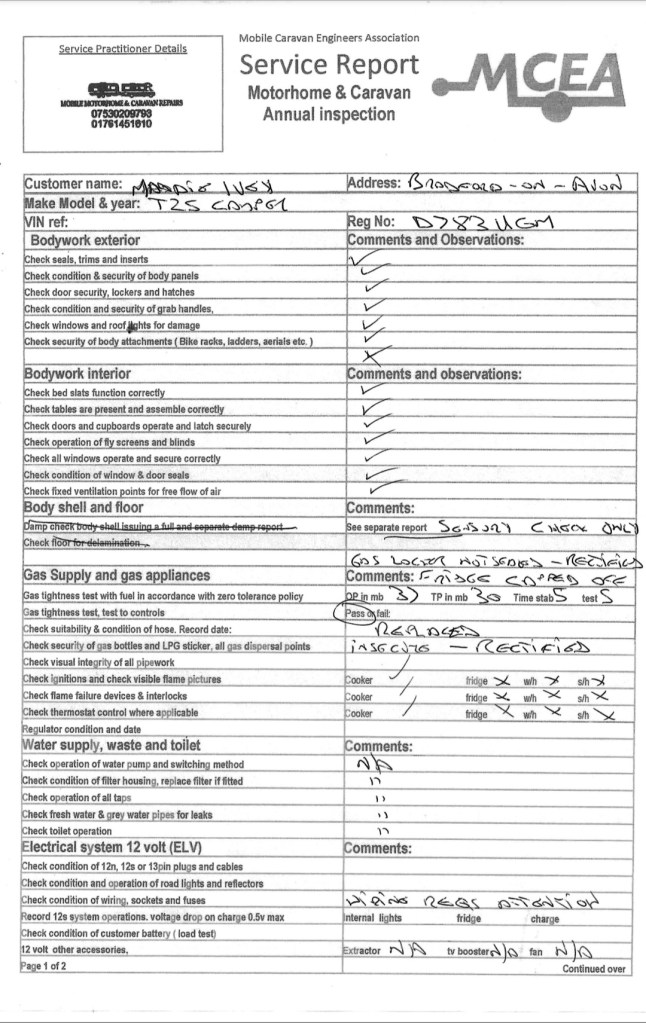 Service Practitioner Details
MOBILE MOTORHOME & CARAVAN REPAIRS
07530209793
01761451610
Mobile Caravan Engineers Association
Service Report
Motorhome & Caravan
Annual inspection
MCEA
Customer name: MADDIE IVEY Address: BRADFORD-ON-AVON
Make Model & year: T25 CAMPER
VIN ref: Reg No: D783 UGM
Bodywork exterior Comments and Observations:
Check seals, trims and inserts ✓
Check condition & security of body panels ✓
Check door security, lockers and hatches ✓
Check condition and security of grab handles, ✓
Check windows and roof lights for damage ✓
Check security of body attachments ( Bike racks, ladders, aerials etc. ) ✓
X
Bodywork interior Comments and observations:
Check bed slats function correctly ✓
Check tables are present and assemble correctly ✓
Check doors and cupboards operate and latch securely ✓
Check operation of fly screens and blinds ✓
Check all windows operate and secure correctly ✓
Check condition of window & door seals ✓
Check fixed ventilation points for free flow of air ✓
Body shell and floor Comments:
Damp check body shell issuing a full and separate damp report See separate report SENSORY CHECK ONLY
Check floor for delamination
GAS LOCKER NOT SEALED - RECTIFIED
Gas Supply and gas appliances Comments: FRIDGE CAPPED OFF
Gas tightness test with fuel in accordance with zero tolerance policy OP in mb TP in mb 30 Time stab 5 test 5
Gas tightness test, test to controls Pass or fail:
Check suitability & condition of hose. Record date: REPLACED
Check security of gas bottles and LPG sticker, all gas dispersal points INSECURE - RECTIFIED
Check visual integrity of all pipework ✓
Check ignitions and check visible flame pictures Cooker ✓ fridge X w/h X s/h X
Check flame failure devices & interlocks Cooker ✓ fridge X w/h X s/h X
Check thermostat control where applicable Cooker ✓ fridge X w/h X s/h X
Regulator condition and date
Water supply, waste and toilet Comments:
Check operation of water pump and switching method N/A
Check condition of filter housing, replace filter if fitted "
Check operation of all taps "
Check fresh water & grey water pipes for leaks "
Check toilet operation "
Electrical system 12 volt (ELV) Comments:
Check condition of 12n, 12s or 13pin plugs and cables
Check condition and operation of road lights and reflectors
Check condition of wiring, sockets and fuses WIRING REQS ATTENTION
Record 12s system operations. voltage drop on charge 0.5v max Internal lights fridge charge
Check condition of customer battery ( load test)
12 volt other accessories, Extractor N/A tv booster N/A fan N/A
Page 1 of 2 Continued over